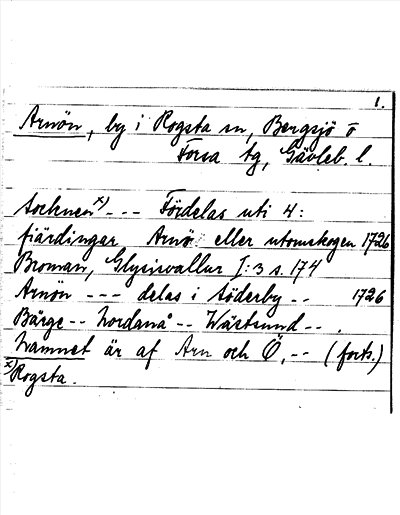 1.
Arnön, by i Rogsta sn, Bergsjö o
Forsa tg, Gävleb. l.
Socknen x) --- Fördelas uti 4:
fjärdingar Arnö eller utomskogen 1726
Broman, Glysisvallur I:3 s. 174
Arnön --- delas i Söderby -- 1726
Bärge -- Nordanå -- Wästsund -- .
Namnet är af Arn och Ö, -- (forts.)
x) Rogsta.